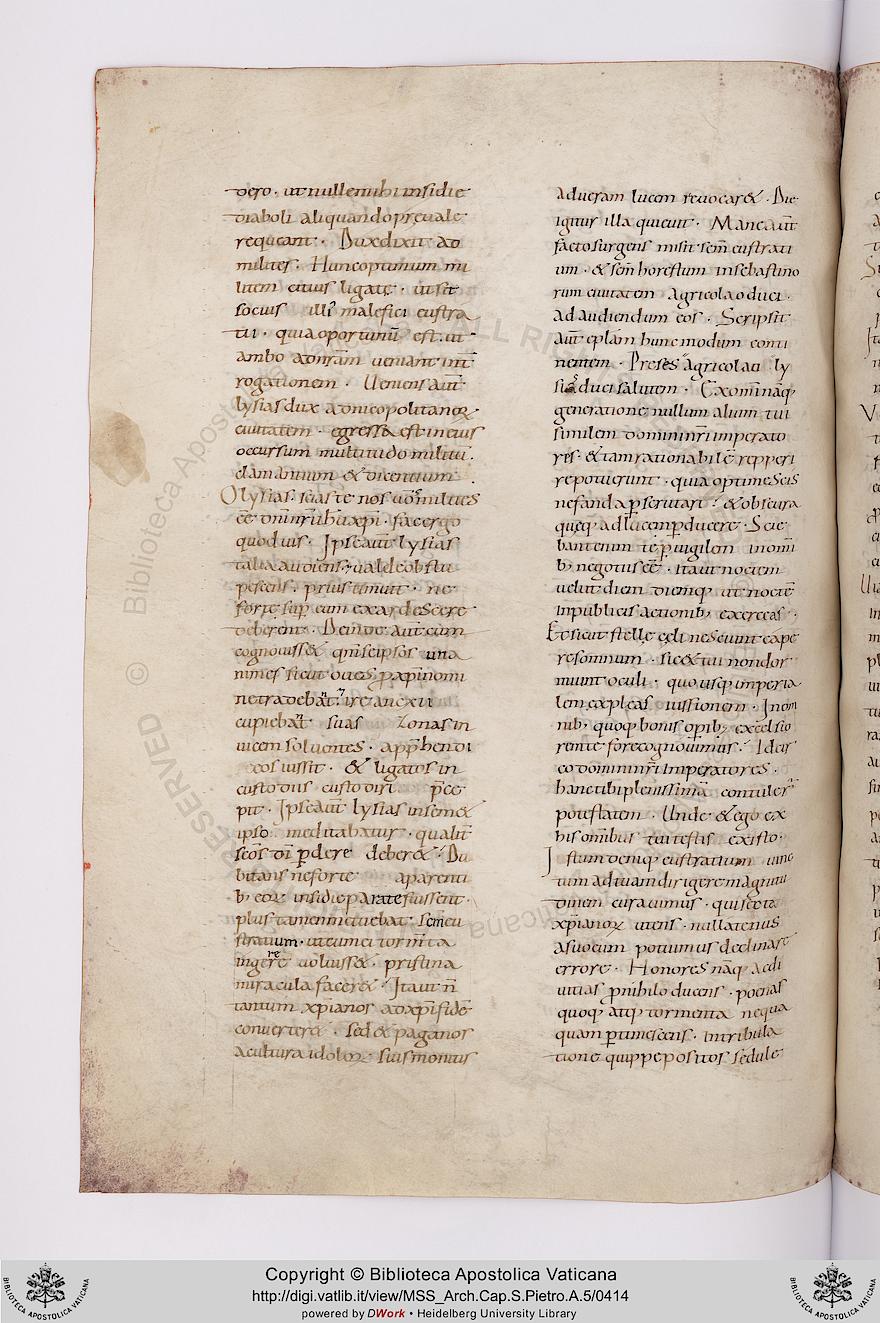 vero · ut nulle mihi insidie
diaboli aliquando prevale
re queant · Dux dixit ad
milites · Hunc optimum mi
litem citius ligate · ut sit
socius illi' malefici eustra
tii · quia oportunũ est · ut
ambo ad nr̃am veniant int̃
rogationem · Veniens aut̃
lysias dux ad nicopolitanoꝝ
civitatem · egressa est in eius
occursum multitudo militũ ·
clamantium & dicentium
O lysias · scias te nos
eẽ dñi nr̃i ihũ xpĩ · fac ergo
quod vis · Ipse aut̃ lysias
talia audiens · valde obstu
pescens · prius timuit · ne
forte sup̱ eum exardescere
deberent · Deinde aut̃ cum
cognoviss& qm̃ se ipsos una
nimes sicut oves ꝓ xpĩ nomi
ne
cupiebañt suas zonas in
vicem solventes · app̃hendi
eos iussit · & ligatos in
custodiis custodiri p̃ce
pit · Ipse aut̃ lysias in sem&
ipso meditabatur · qualit̃
sc̃os dĩ ꝑdere deber& · Du
bitans ne forte aparenti
b; eoꝝ insidie parate fuissent ·
plus tamen metuebat · sem eu
stratium · ut cum ei torm̃ta
ingere voluiss& · pristina
miracula facer& · Ita ut ñ
tantum xp̃ianos ad xpĩ fidẽ
converter& · sed & paganos
a cultura idoloꝝ suis monitis
ad veram lucem revocar& · Die
igitur illa quievit · Mane aut̃
facto surgens misit sc̃m eustrati
um · & sc̃m horestum in sebastino
rum civitatem Agricolao duci ·
ad audiendum eos · Scripsit
aut̃ epl̃am hunc modum conti
nentem · Preses Agricolao ly
sias duci salutem · Ex omi nãq;
generatione nullum alium tui
similem domini nr̃i imperato
res · & iam rationabilẽ repperi
re potuerunt · quia optime scis
nefanda ꝑscrutari · & obscura
queq; ad lucem ꝑducere · Scie
bant enim te ꝑvigilem in omi
b; negotiis eẽ · ita ut noctem
velut diem diemq; ut noctẽ
in publicis actionib; exerceas ·
Et sicut stelle celi nesciunt cape
re somnum · sic & tui non dor
miunt oculi · quousq; imperia
lem expleas iussionem · In om
nib; quoq; bonis opib; excelsio
rem te fore cognovimus · Ideir
co domini nr̃i imperatores ·
hanc tibi plenissimã contuler̃
potestatem · Unde & ego ex
his omibus tui testis existo ·
Istum denique eustratium nunc
tum ad tuam dirigere magnitu
dinem curavimus · qui secta
xp̃ianoꝝ utens · nullatenus
a suo eum potuimus declinare
errore · Honores nãq; ac di
vitias ꝓ nihilo ducens · poenas
quoq; atq; tormenta nequa
quam ꝑtimescens · in tribula
tione quippe positos sedule
Copyright © Biblioteca Apostolica Vaticana
http://digi.vatlib.it/view/MSS_Arch.Cap.S.Pietro.A.5/0414
powered by DWork • Heidelberg University Library